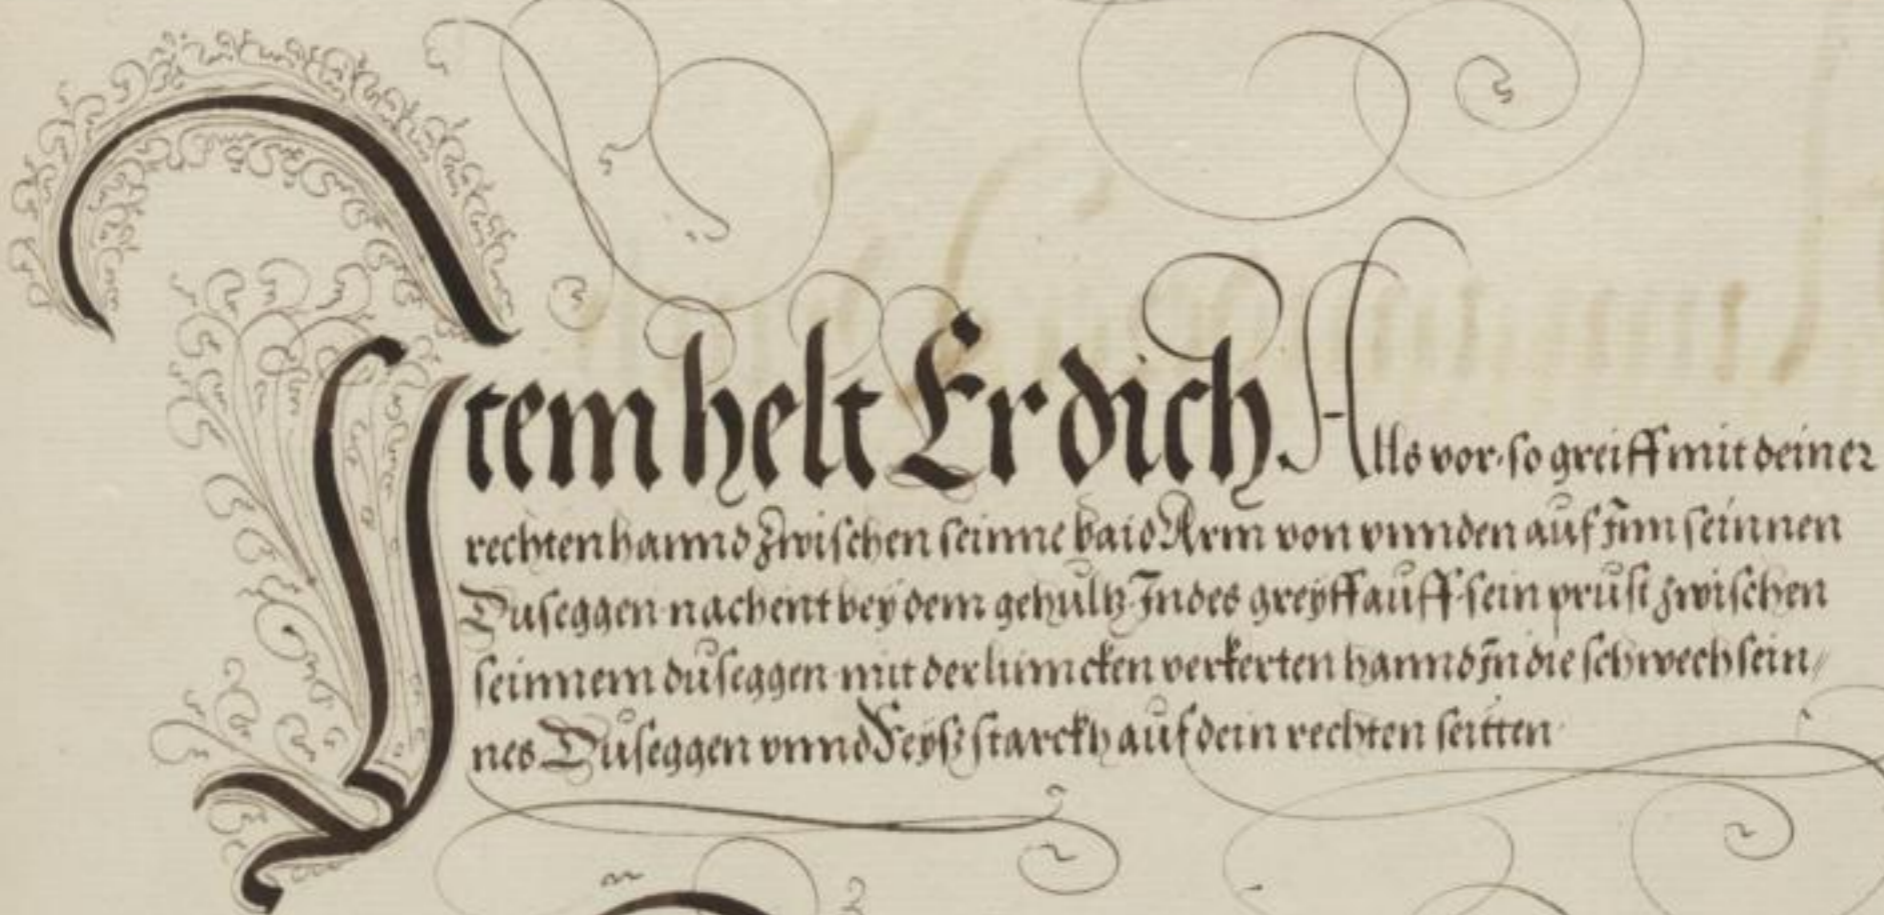 Item helt Er dich Alls vor· so greiff mit deiner
rechten hannd zwischen seinne baid Arm von vnnden auf Inn seinnen
Duseggen nachent bey dem gehültz Indes greyff auff sein prüst zwischen
seinnem düseggen mit der linncken verkerten hannd In die schwech sein//
nes Duseggen vnnd Reyss starckh auf dein rechten seitten·